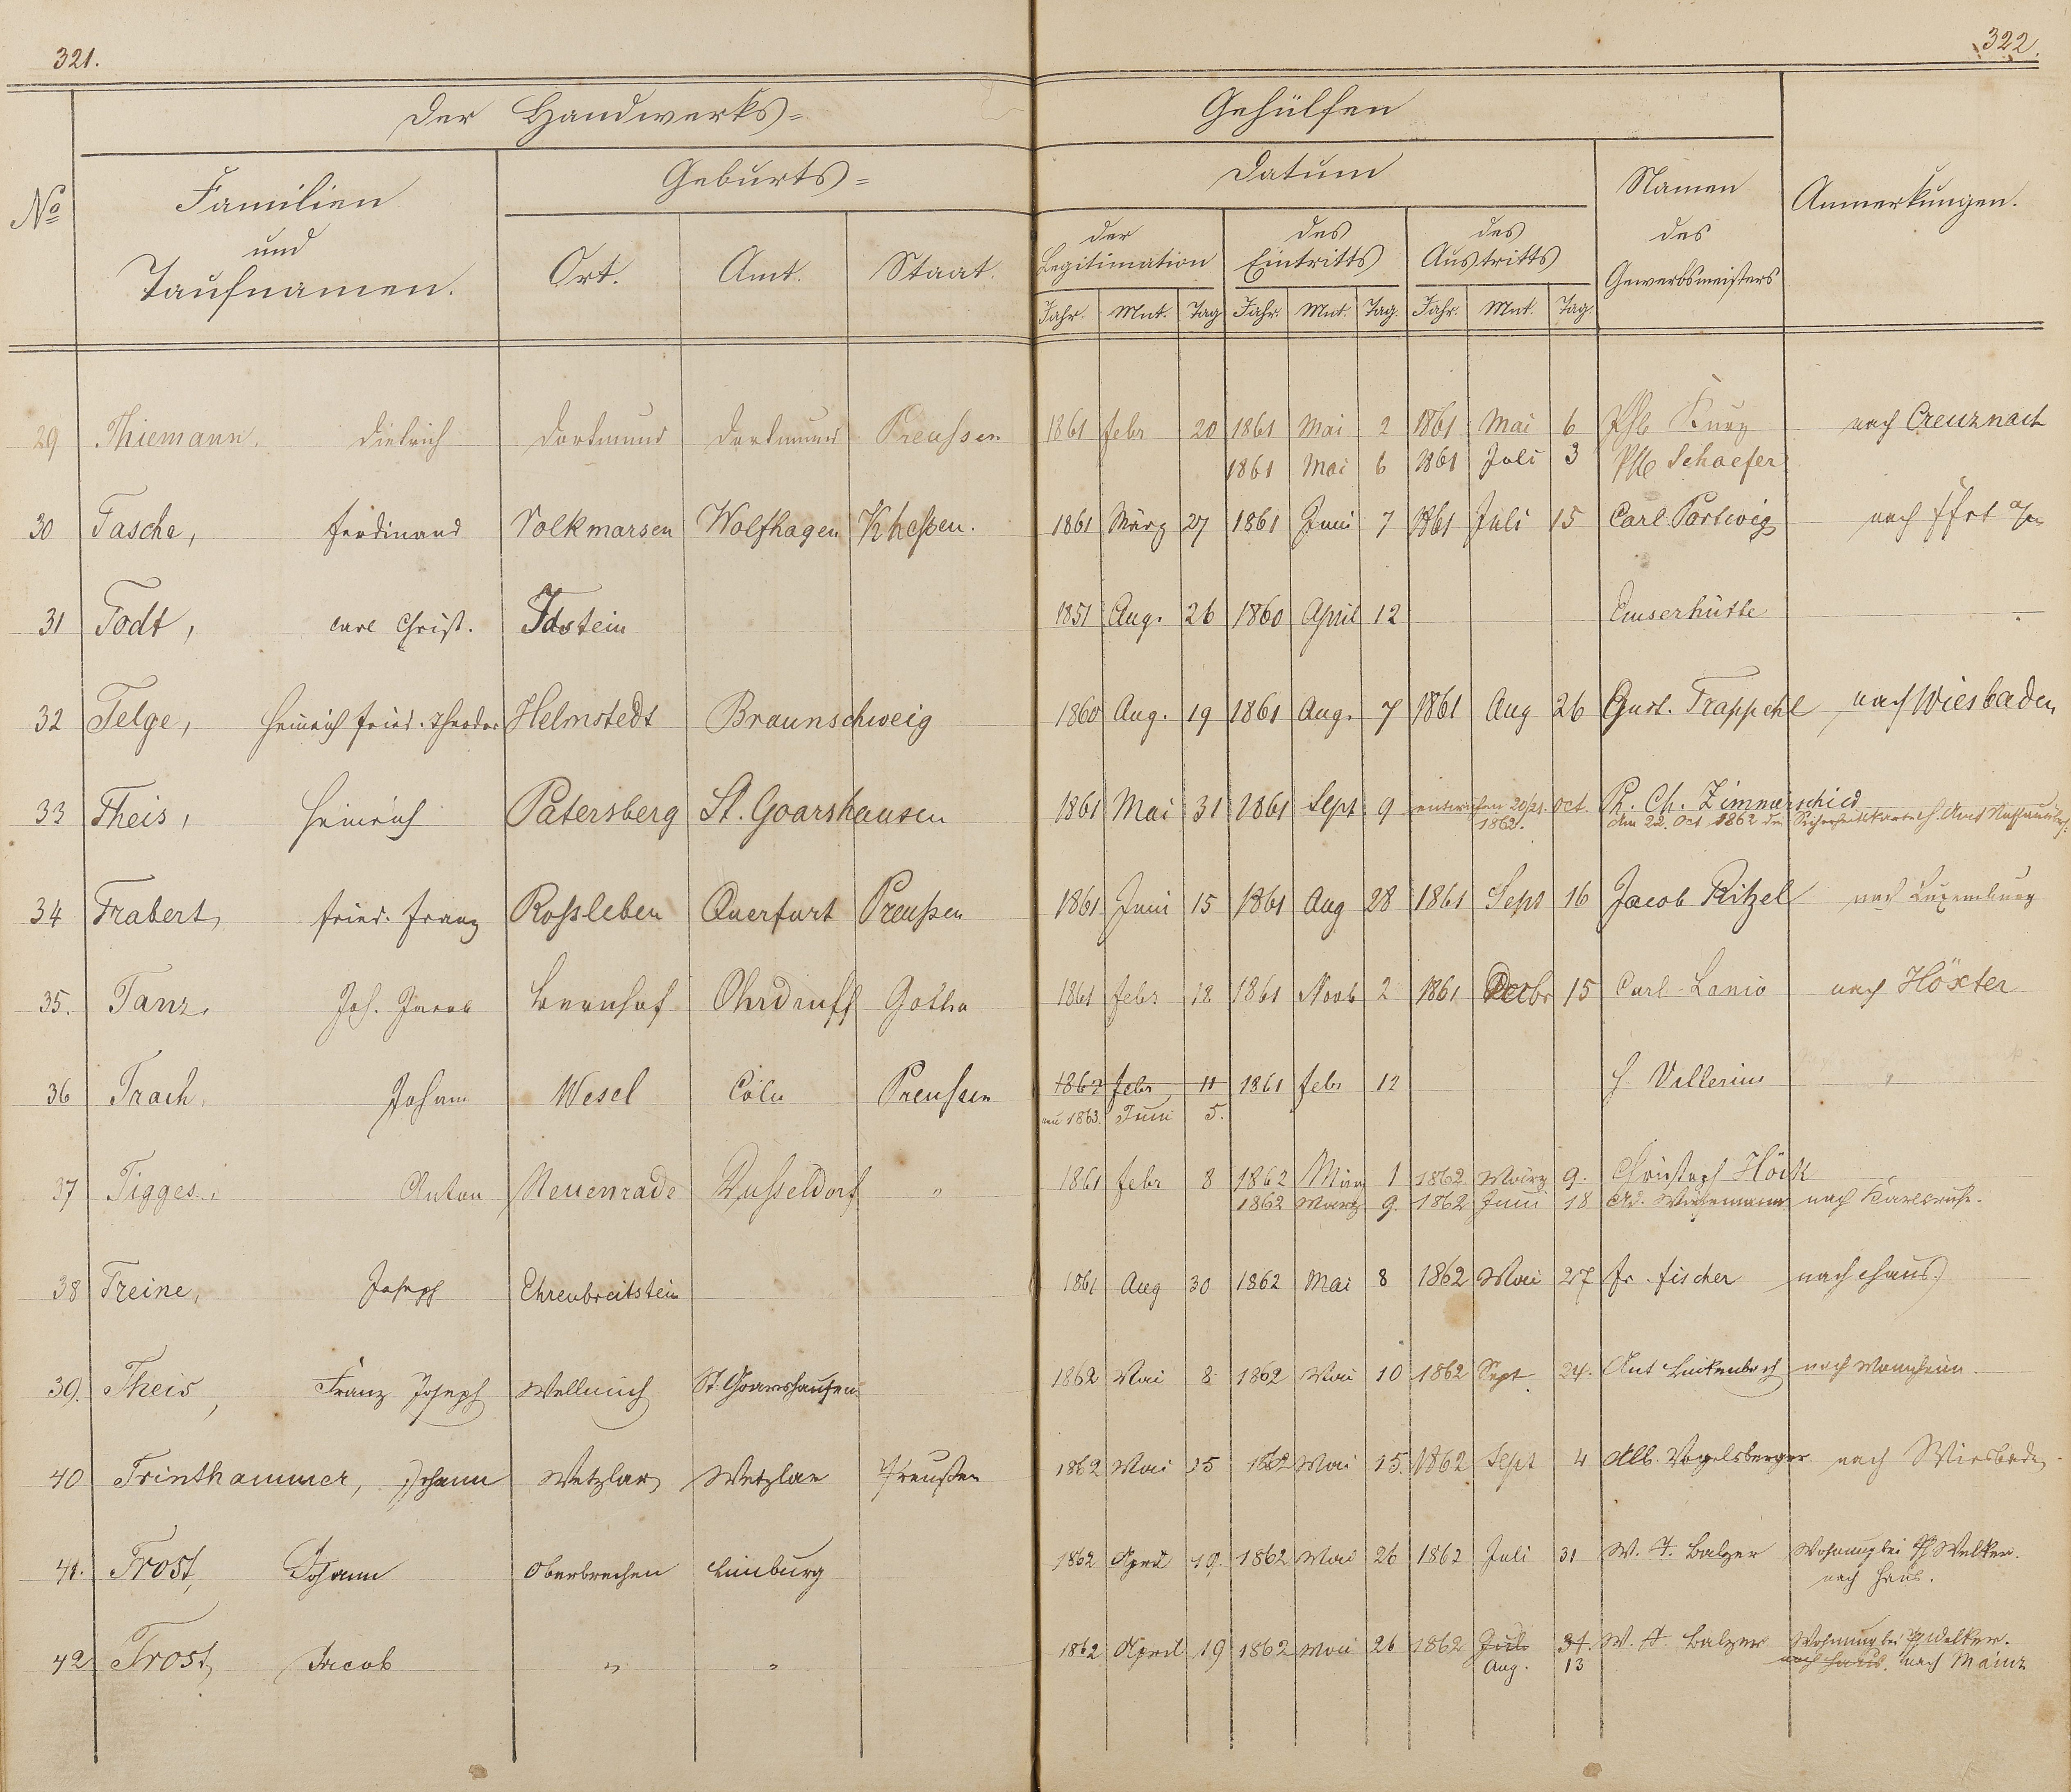 321.
322.
Der Handwerks=
Gehülfen
No
Familien
und
Taufnamen.
Geburts=
Ort. Amt. Staat.
Datum
der Legitimation
des Eintritts
des Austritts
Jahr. Mnt. Tag Jahr. Mnt. Tag. Jahr. Mnt. Tag.
Namen
des
Gewerbsmeisters
Anmerkungen.
29 Thiemann, Dietrich Dortmund Dortmund Preussen 1861 Febr 20 1861 Mai 2 1861 Mai 6 Kurz nach Creuznach
1861 Mai 6 1861 Juli 3 Schaefer
30 Tasche, Ferdinand Volkmarsen Wolfhagen Khessen. 1861 März 27 1861 Juni 7 1861 Juli 15 Carl Portwig nach Ffrt a/m
31 Todt, Carl Christ. Idstein 1851 Aug. 26 1860 April 12 Emserhütte —
32 Telge, Heinrich Fried. Theodor Helmstedt Braunschweig 1860 Aug. 19 1861 Aug. 7 1861 Aug 26 Gust. Trappehl nach Wiesbaden
33 Theis, Heinrich Patersberg St. Goarshausen 1861 Mai 31 1861 Sept 9 entwichen 20/21. Oct. Ph. Ch. Zimmerschied
1862. Am 22. Oct 1862 die Sicherheitskarte H. Amt Nassau
34 Trabert, Fried. Franz Rossleben Querfurt Preussen 1861 Juni 15 1861 Aug 28 1861 Sept 16 Jacob Ritzel nach Luxemburg
35. Tanz, Joh. Jacob Ohrdruff Gotha 1861 Febr 18 1861 Novb 2 1861 Decbr 15 Carl Lanio nach Höxter
36 Trach, Johann Wesel Cöln Preussen 1862 Febr 11 1861 Febr 12 Villerius "
neu 1863. Juni 5.
37 Tigges, Anton Neuenrade Dusseldorf " 1861 Febr 8 1862 März 1 1862 März 9. Christoph Höck
1862 März 9. 1862 Juni 18 Ad. nach Karlsruhe.
38 Treine, Joseph Ehrenbreitstein 1861 Aug 30 1862 Mai 8 1862 Mai 27 Fr. Fischer nach Haus)
39. Theis, Franz Joseph Wellmich St. Goarshausen 1862 Mai 8 1862 Mai 10 1862 Sept 24. Ant Linkenbach nach Mannheim.
40 Trinthammer, Johann Wetzlar Wetzlar Preußen 1862 Mai 15 1862 Mai 15. 1862 Sept 4 Alb. Vogelsberger nach Wiesbaden
41. Trost, Johann Oberbrechen Limburg 1862 April 19. 1862 Mai 26 1862 Juli 31 W. A. Balzer Wohnung bei Ph Welker.
nach Haus.
42 Trost, Jacob " " 1862 April 19 1862 Mai 26 1862 Juli 31. W. A. Balzer Wohnung bei Ph Welker.
Aug. 13 nach Haus. nach Mainz